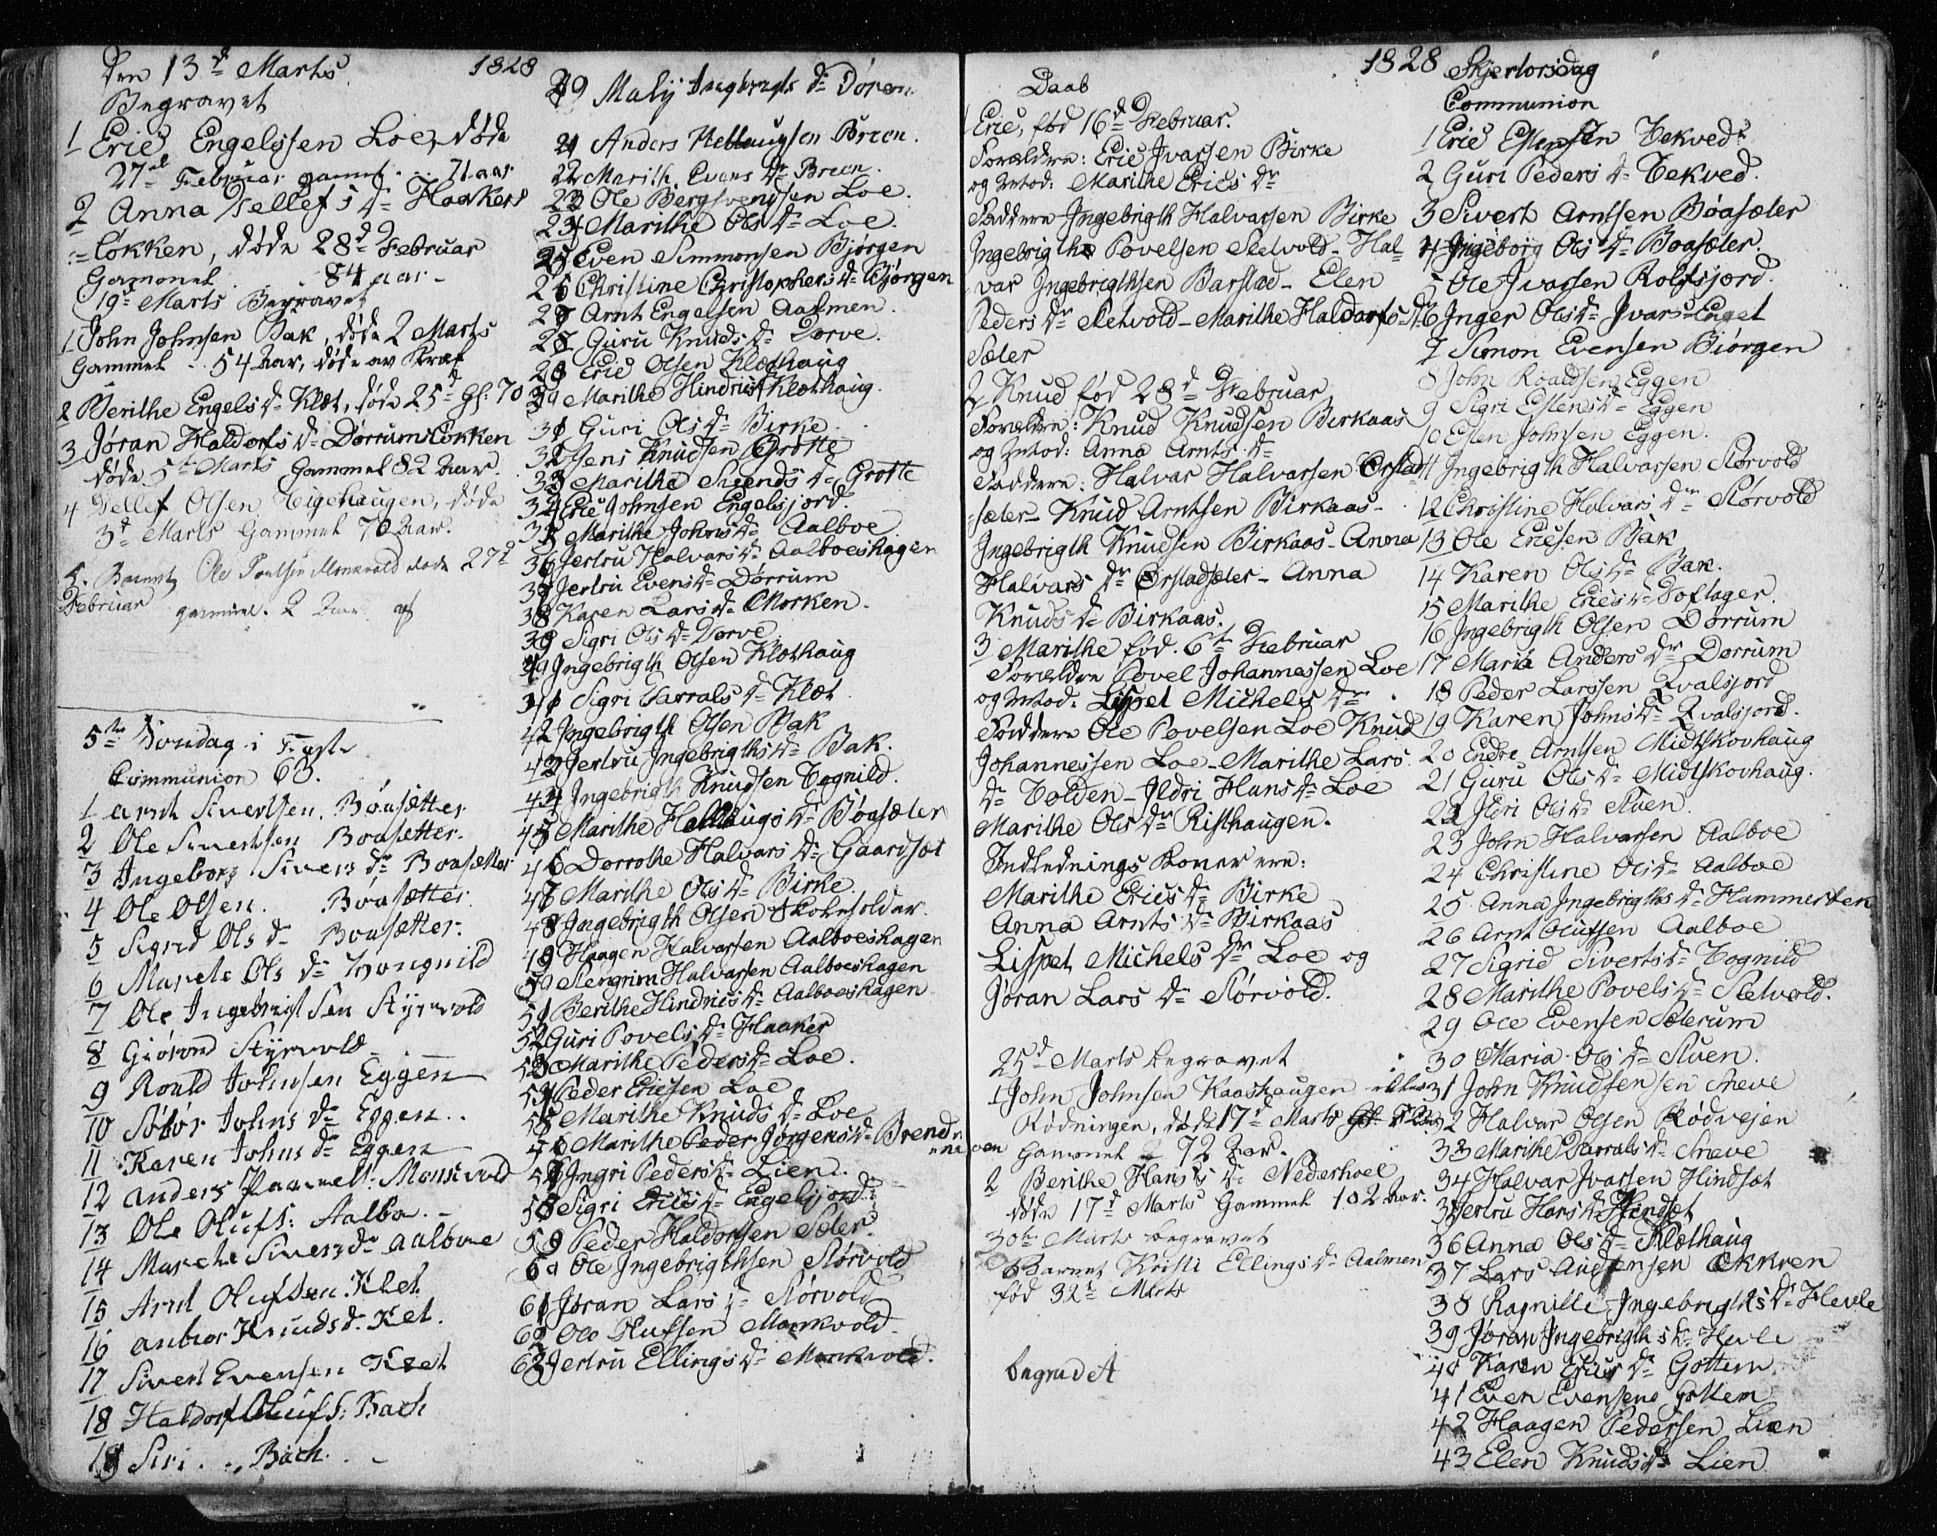 Den 13d Marts 1828
Begravet
1 Eric Engelssen Loe, døde
27d Februar gamel 71 aar
2 Anna Tellefs Dr Haaker
=løkken, døde 28d Februar
Gammel 84 aar -
19de Marts Begravet
1 John Johnsen Bak, døde 2 Marts
Gammel 54 Aar, døde av
2 Berithe Engels Dr Klæt, døde 25d Gl: 70
3 Jøran Haldorfs Dr Dørrumsløkken
døde 5te Marts Gammel 82 Aar.
4 Tellef Olsen, døde
3d Marts Gammel 70 Aar.
5. Barnet Ole død 27d
Februar gammel. 2 Aar
5te Søndag i Faste
Communion 63.
1 Arnt Sivertsen. Bøasætter
2 Ole Sivertsen Boasetter.
3 Ingeborg Sivers Dr Boasætter
4 Ole Olsen. Boasætter.
5 Sigrid Ols Dr Boasætter.
6 Marete Ols Dr
7 Ole Ingebrigtsen Styrvold
8 Giøran Styrvold
9 Roald Johnsen Eggen
10 Johns Dr Eggen.
11 Karen Johns Dr Eggen
12 Anders
13 Ole Olufs: Aalbo. -
14 Marete Sivers Dr Aalboe
15 Arnt Olufsen Klet
16 Knuds Dr Klet.
17 Sivert Evensen Klet
18 Haldorf Olufs: Bach
19 Siri. „ Bach. -
20 Maly Ingbrigts Dr Døren.
21 Anders Hellaugsen Breen.
22 Marith. Evens Dr Breen.
23 Ole Bergsvendsen Loe.
24 Marithe Ols Dr Loe.
25 Even Simmonsen Bjørgen
26 Christine Christophers Dr Bjørgen
27 Arnt Engelsen Aalmen.
28 Guru Knuds Dr Torve.
29 Eric Olsen Klæthaug
30 Marithe Hindrics Klæthaug.
31 Guri Ols Dr Birke
32 Jens Knudsen Grotte
33 Maritha Svends Dr Grotte
34 Eric Johnsen Engelsjord.
35 Marithe Johns Dr Aalboe
36 Jertru Halvars Dr Aalboeshagen
37 Jertru Evens Dr Dørrum
38 Karen Lars Dr Morken.
39 Sigri Ols Dr Torve
40 Ingebrigth Olsen Klæthaug
41 Sigri Tarrals Dr Klæt.
42 Ingebrigth Olsen Bak
43 Jertru Ingebrigths Dr Bak.
44 Ingebrigth Knudsen Tognild.
45 Marithe Hellaugs Dr Bøasæter
46 Dorrothe Halvars Dr Gaardsæt
47 Marithe Ols Dr Birke
48 Ingebrigth Olsen Skoleholder.
49 Haagen Halvarsen Aalboeshagen
50 Stengrim Halvarsen Aalboeshagen
51 Berithe Hindrics Dr Aalboeshagen
52 Guri Povels Dr Haaker
53 Marithe Peders Dr Loe.
54 Peder Ericsen Loe
55 Marithe Knuds Dr Loe
56 Marithe Peder Jørgens Dr Brend
57 Ingri Peders Dr Lien.
58 Sigri Erics Dr Engelsjord.
59 Peder Haldorsen Sæter.
60 Ole Ingebrigthsen Størvold
61 Jøran Lars Dr Størvold
62 Ole Olufsen Monkvold.
63 Jertru Ellings Dr Monkvold.
1828
Daab
1 Eric, fød 16d Februar.
Forældre: Eric Ivarsen Birke
og Mod: Marithe Erics Dr
Faddere Ingebrigth Halvarsen Birke
Ingebrigth Povelsen Stetvold - Hal=
var Ingebrigthsen Barstad - Elen
Peders Dr Stetvold - Marithe Haldorfs Dr
Sæter
2 Knud fød 28d Februar
Forældre: Knud Knudsen Birkaas
og Mod: Anna Arnts Dr
Faddere: Halvar Halvarsen Ørstad
=sæter - Knud Arntsen Birkaas -
Ingebrigth Knudsen Birkaas - Anna
Halvars Dr Ørstadsæter - Anna
Knuds Dr Birkaas.
3 Marithe fød 6te Februar
Forældre Povel Johannessen Loe
og Mod: Lispet Michels Dr
Faddere Ole Povelsen Loe Knud
Johannessen Loe - Marithe Lars
Dr Tolden - Ildri Hans Dr Loe
Marithe Ols Dr Risthaugen.
Indlednings Koner ere:
Marithe Erics Dr Birke
Anna Arnts Dr Birkaas
Lispet Michels Dr Loe og
Jøran Lars Dr Størvold.
25d Marts begravet
1 John Johnsen Kaashaugen
Rødningen, døde 17d Marts
Gammel 72 Aar.
2 Berithe Hans Dr Nederhoel
døde 17d Marts Gammel 102 Aar.
30te Marts begravet
Barnet Kristi Ellings Dr Aalmen
fød Marts
begravet
1828 Skjertorsdag
Communion
1 Eric Estensen Tekved
2 Guri Peders Dr Tekved.
3 Sivert Arntsen Bøasæter
4 Ingeborg Ols Dr Boasæter.
5 Ole Ivarsen Rolfsjord.
6 Inger Ols Dr Ivars=Enget
7 Simon Evensen Biørgen
8 John Roaldsen Eggen
9 Sigri Estens Dr Eggen
10 Esten Johnsen Eggen.
11 Ingebrigth Halvarsen Størvold
12 Christine Halvars Dr Størvold
13 Ole Ericsen Bak
14 Karen Ols Dr Bak.
15 Marithe Erics Dr Toftager.
16 Ingebrigth Olsen Dørrum
17 Maria Anders Dr Dørrum
18 Peder Larssen Qvalsjord
19 Karen Johns Dr Qvalsjord.
20 Endre Arntsen Midtskovhaug
21 Guru Ols Dr Midtskovhaug.
22 Ildri Ols Dr Stuen.
23 John Halvarsen Aalboe
24 Christine Ols Dr Aalboe
25 Anna Ingebrigths Dr Hammerten
26 Arnt Olufsen Aalboe
27 Sigrid Siverts Dr Tognild
28 Marithe Povels Dr Stetvold.
29 Ole Evensen Sæterum
30 Maria Ols Dr Stuen.
31 John Knudsen Sneve
32 Halvar Olsen Rødvejen
33 Marithe Tarrals Dr Sneve
34 Halvar Ivarsen Hindsæt
35 Jertru Hans Dr Hindsæt
36 Anna Ols Dr Klæthaug
37 Lars Audensen Økkren
38 Ragnille Ingebrigths Dr Hevle
39 Jøran Ingebrigths Dr Hevle
40 Karen Erics Dr Gottem.
41 Even Evensen Gottem
42 Haagen Pedersen Lien
43 Elen Knuds Dr Lien